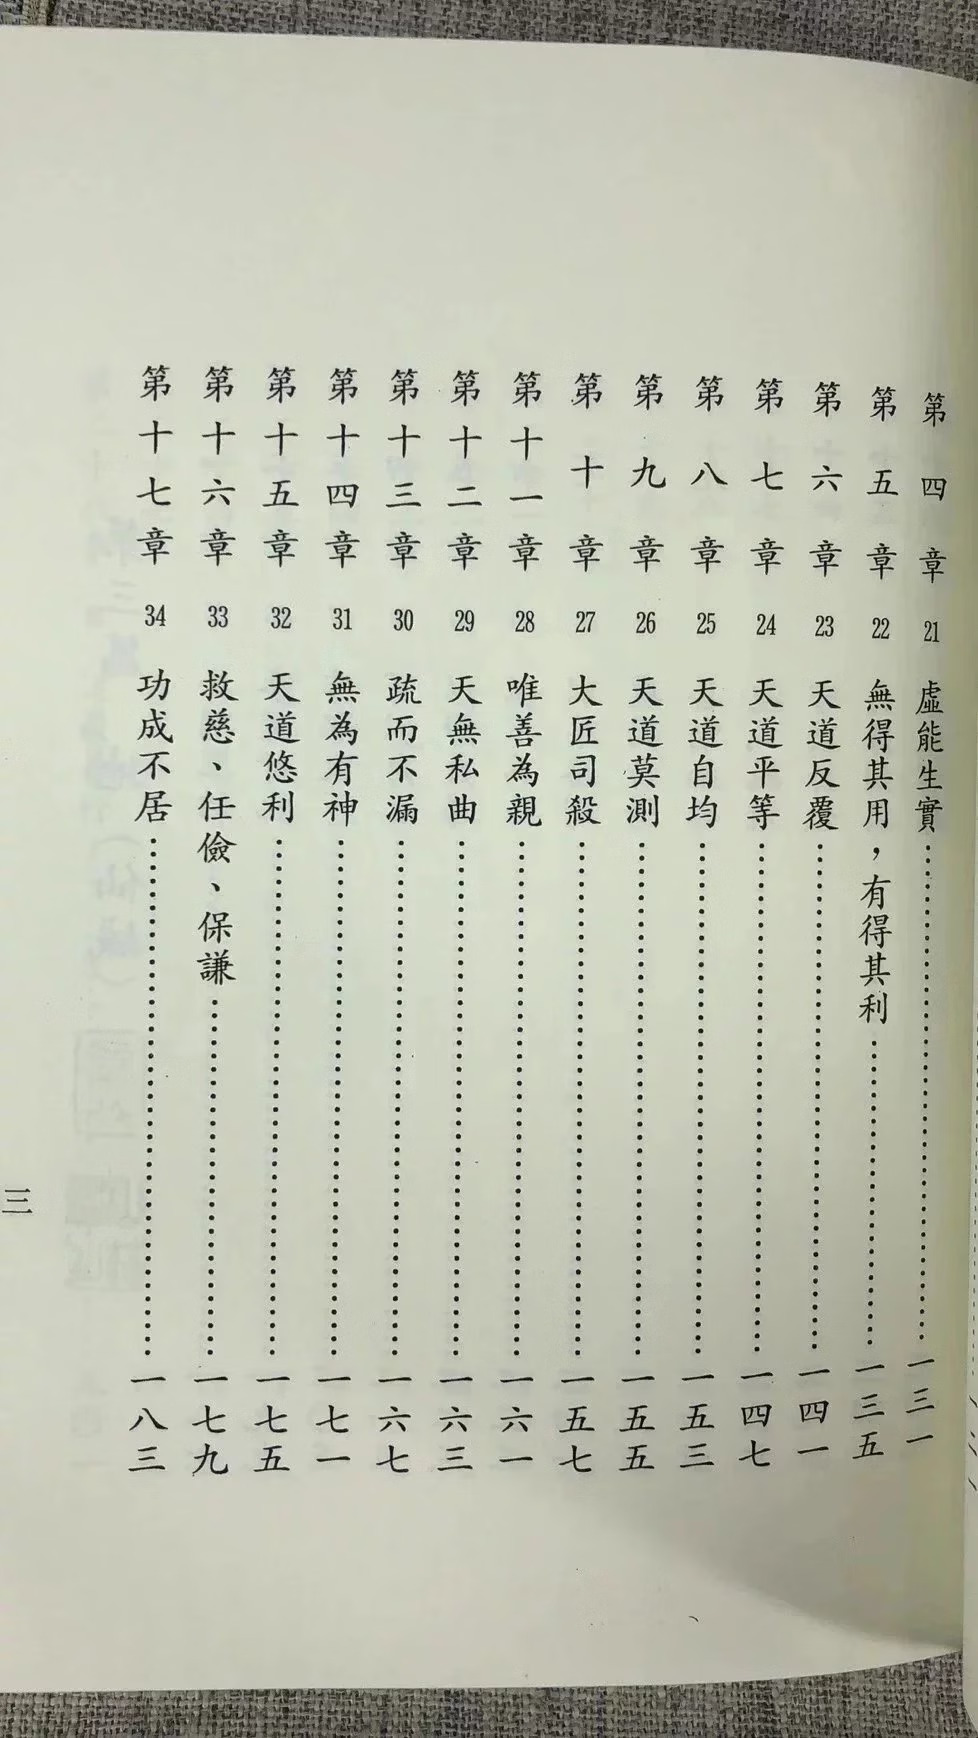 第四章 21 虛能生實……一三一
第五章 22 無得其用，有得其利……一三五
第六章 23 天道反覆……一四一
第七章 24 天道平等……一四七
第八章 25 天道自均……一五三
第九章 26 天道莫測……一五五
第十章 27 大匠司殺……一五七
第十一章 28 唯善為親……一六一
第十二章 29 天無私曲……一六三
第十三章 30 疏而不漏……一六七
第十四章 31 無為有神……一七一
第十五章 32 天道悠利……一七五
第十六章 33 救慈、任儉、保謙……一七九
第十七章 34 功成不居……一八三
三